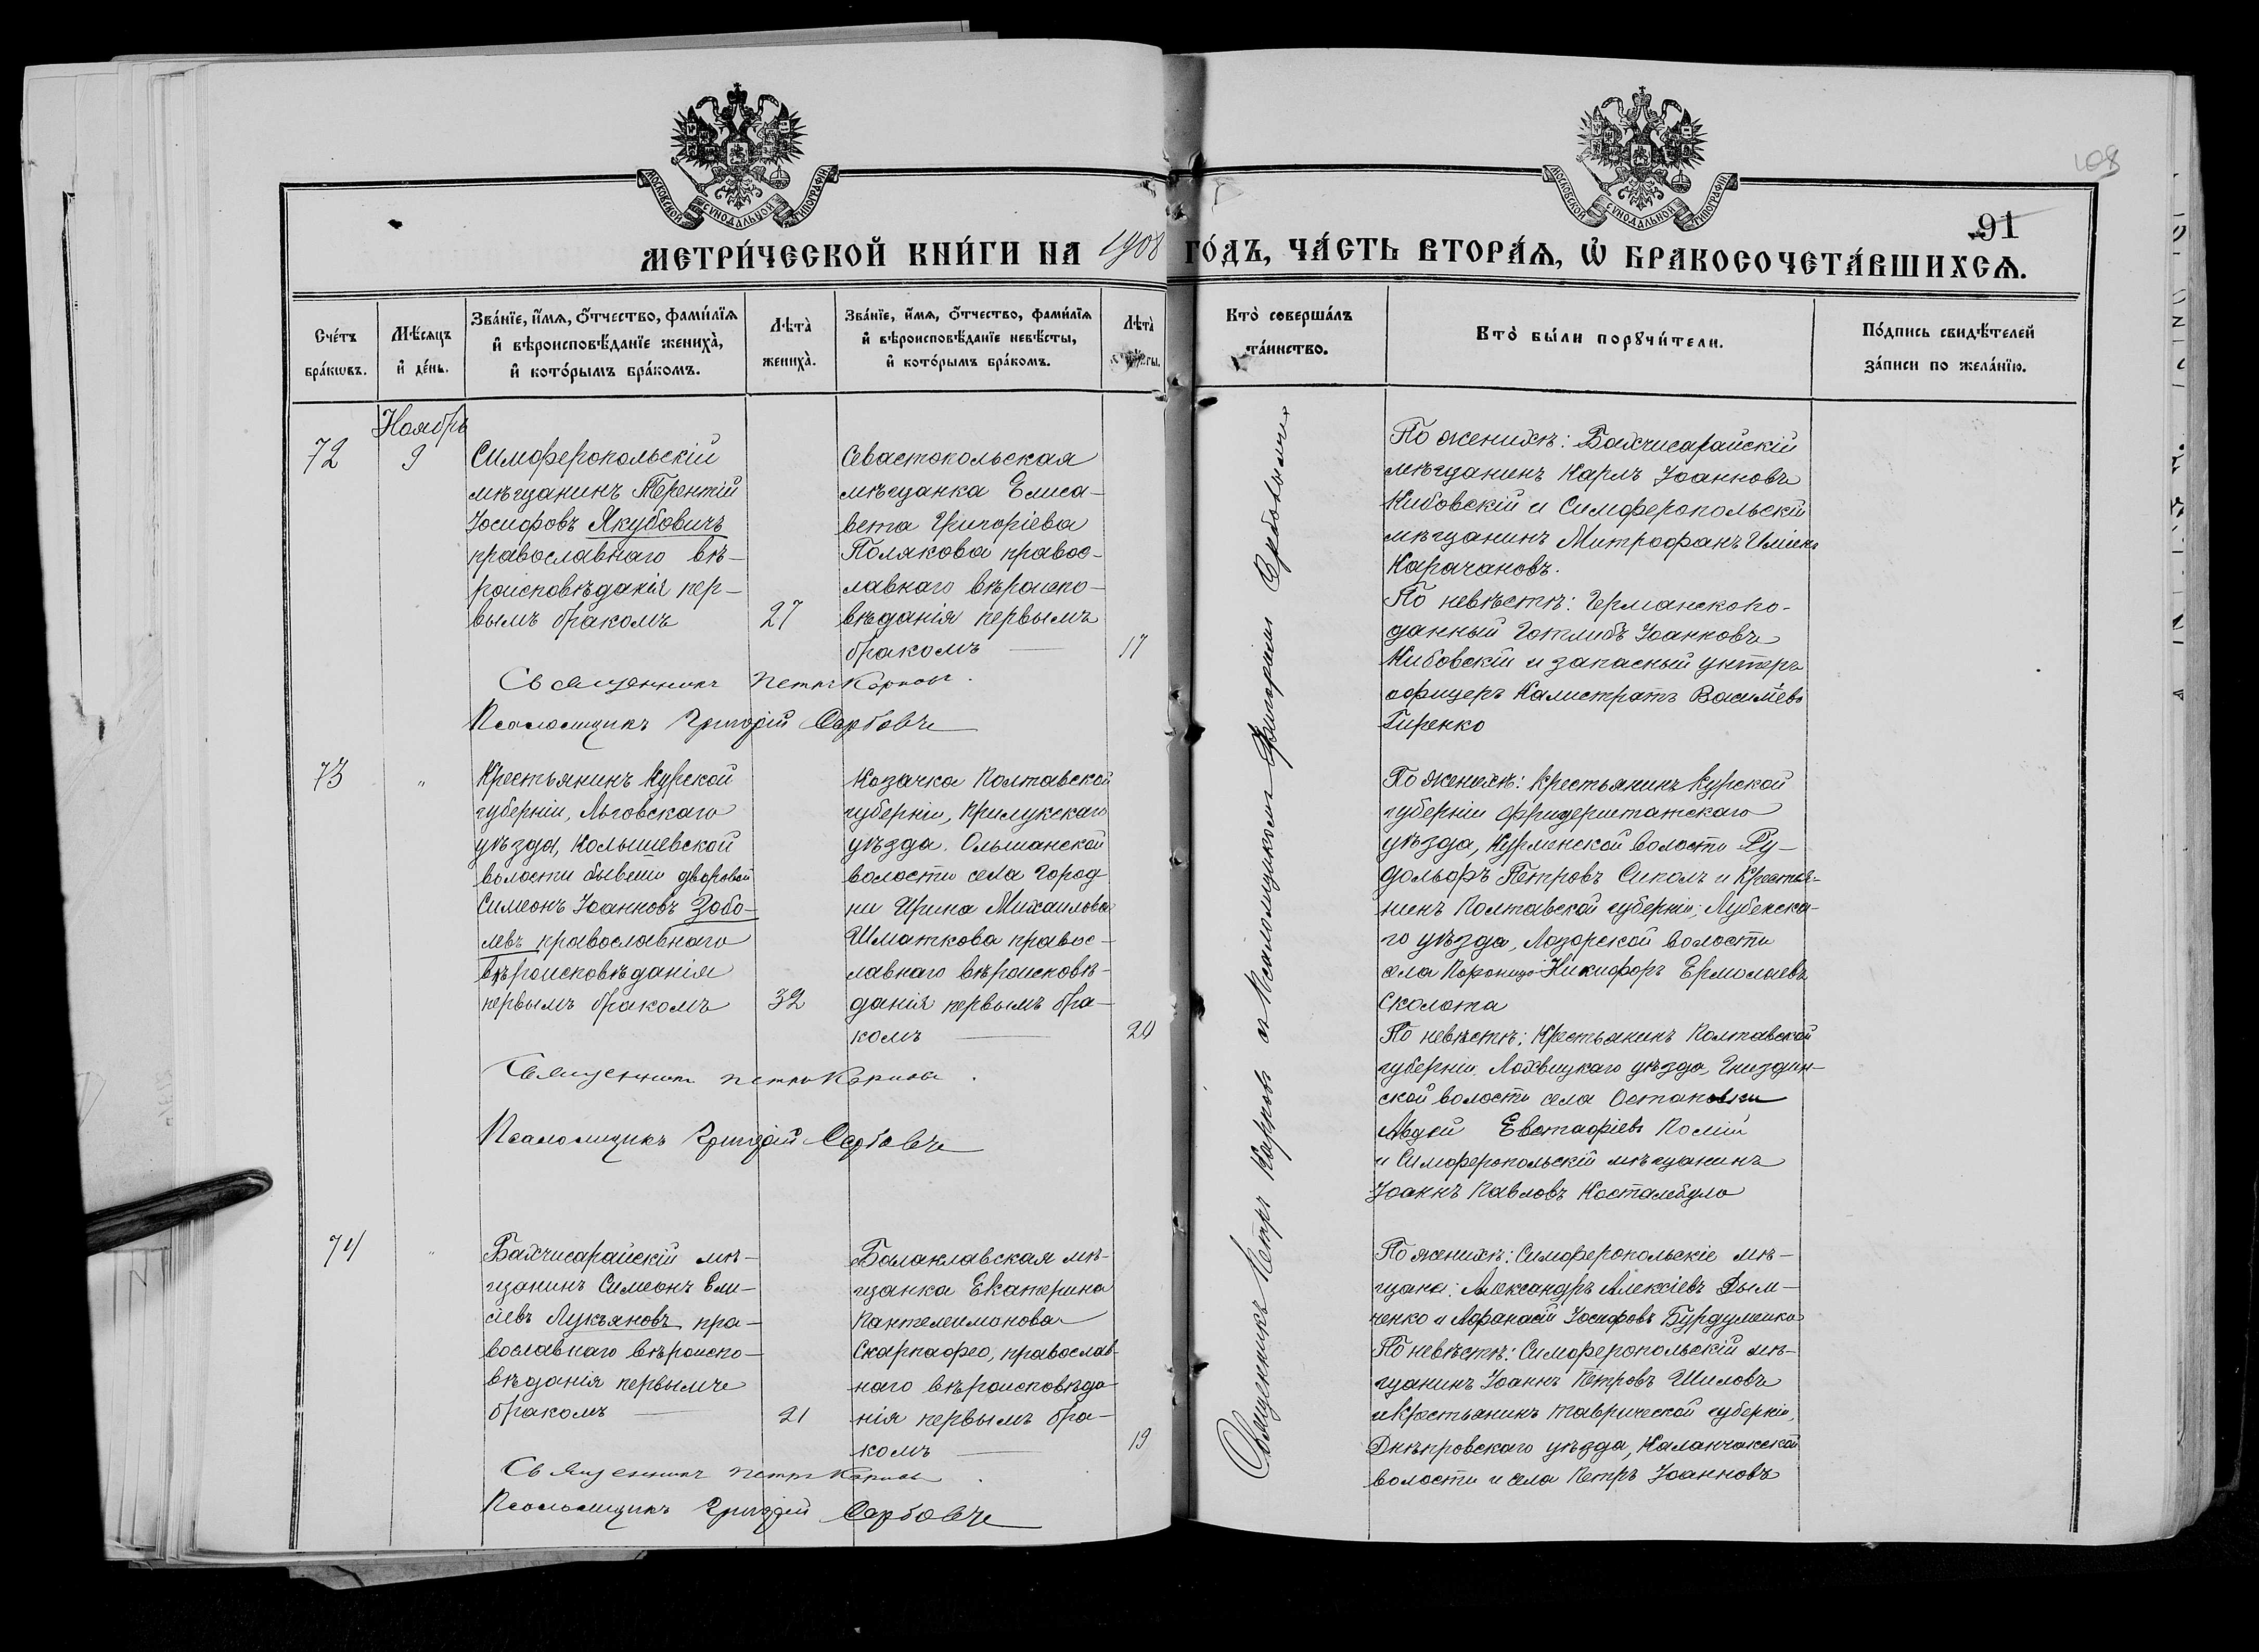 МОСКОВСКОЙ СѴНОДАЛЬНОЙ ТИПОГРАФІИ
МОСКОВСКОЙ СѴНОДАЛЬНОЙ ТИПОГРАФІИ
108
91
МЕТРИ́ЧЕСКОЙ КНИ́ГИ НА 1908 ГО́ДЪ, ЧА́СТЬ ВТОРА́Ѧ, Ѡ҆ БРАКОСОЧЕТА́ВШИХСѦ.
Сче́тъ бра́кѡвъ.
Мѣ́сяцъ и҆ де́нь.
Зва́нїе, и҆́мѧ, ѻ҆́тчество, фами́лїѧ
и҆ вѣроисповѣ́данїе жениха̀,
и҆ кото́рымъ бра́комъ.
Лѣта̀ жениха̀.
Зва́нїе, и҆́мѧ, ѻ҆́тчество, фами́лїѧ
и҆ вѣроисповѣ́данїе невѣ́сты,
и҆ кото́рымъ бра́комъ.
Лѣта̀
Кто̀ соверша́лъ та́инство.
Кто̀ бы́ли порꙋчи́тели.
По́дпись свидѣ́телей
за́писи по жела́нїю.
Ноябрь
72
9
Симферопольскій
мѣщанинъ Терентій
Іосифовъ Якубовичъ
православнаго вѣ-
роисповѣданія пер-
вымъ бракомъ
27
Севастопольская
мѣщанка Елиса-
вета Григоріева
Полякова правос-
лавнаго вѣроиспо-
вѣданія первымъ
бракомъ
17
Священникъ Петръ Карповъ.
Псаломщикъ Григорій
Священникъ Петръ Карповъ съ Псаломщикомъ Григоріемъ
По женихѣ: Бахчисарайскій
мѣщанинъ Карлъ Іоанновъ
Кибовскій и Симферопольскій
мѣщанинъ Митрофанъ
Карачановъ.
По невѣстѣ: Германскопо-
данный Готлибъ Іоанновъ
Кибовскій и запасный унтеръ
офицеръ Калистратъ Василіевъ
Гиренко
73
"
Крестьянинъ Курской
губерніи, Льговскаго
уѣзда, Колышевской
волости бывшій дворовый
Симеонъ Іоанновъ Зобо-
левъ православнаго
вѣроисповѣданія
первымъ бракомъ
32
Козачка Полтавской
губерніи, Прилукскаго
уѣзда. Ольшанской
волости села Город
ни Ирина Михаилова
Шматкова правос-
лавнаго вѣроисповѣ-
данія первымъ бра-
комъ
20
Священникъ Петръ Карповъ.
Псаломщикъ Григорій
По женихѣ: Крестьянинъ Курской
губерніи
уѣзда, Курменской волости Ру-
дольфъ Петровъ и Крестья-
нинъ Полтавской губерніи, Лубенска-
го уѣзда, Лазорской волости
села Никифоръ Ермолаевъ
Сколота
По невѣстѣ: Крестьянинъ Полтавской
губерніи Лохвицкаго уѣзда,
ской волости села Остановки
Авдей Евстафіевъ
и Симферопольскій мѣщанинъ
Іоаннъ Павловъ
74
"
Бахчисарайскій мѣ-
щанинъ Симеонъ Ели-
сіевъ Лукьяновъ пра-
вославнаго вѣроиспо-
вѣданія первымъ
бракомъ
21
Балаклавская мѣ-
щанка Екатерина
Пантелеимонова
Скарлафео, православ-
наго вѣроисповѣда-
нія первымъ бра-
комъ
19
Священникъ Петръ Карповъ.
Псаломщикъ Григорій
По женихѣ: Симферопольскіе мѣ-
щане: Александръ Алексіевъ Дым-
ченко и Афанасій Іосифовъ Бурдуменко
По невѣстѣ: Симферопольскій мѣ-
щанинъ Іоаннъ Петровъ Шиловъ
и Крестьянинъ Таврической губерніи,
Днѣпровскаго уѣзда, Каланчакской
волости и села Петръ Іоанновъ